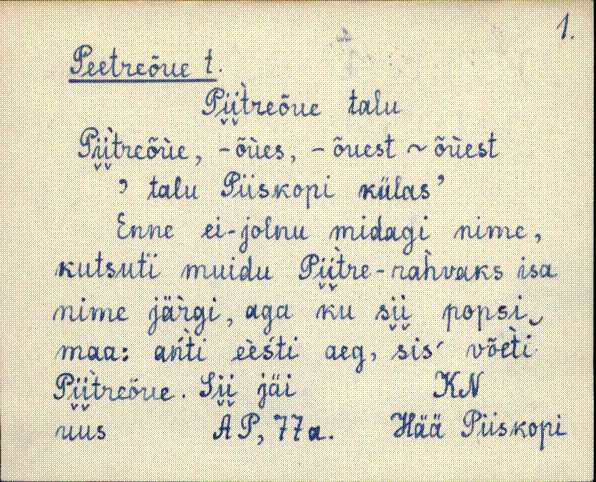 1.
Peetreõue t.
Pi̮i̮t̀reõue talu
Pi̮i̮t̀reõùe, -õùes, -õuest ~ õùest
’ talu Piiskopi külas’
Enne ei-jolnu midagi nime,
kutsut̀i muidu Pi̮i̮t̀re-rahvaks isa
nime jär̀gi, aga ku si̮i̮ popsi‿
maa: ańti eèśti aeg, sis´ võet̀i
Pi̮i̮t̀reõue. Si̮i̮ jäi KN
uus AP, 77a. Hää Piiskopi